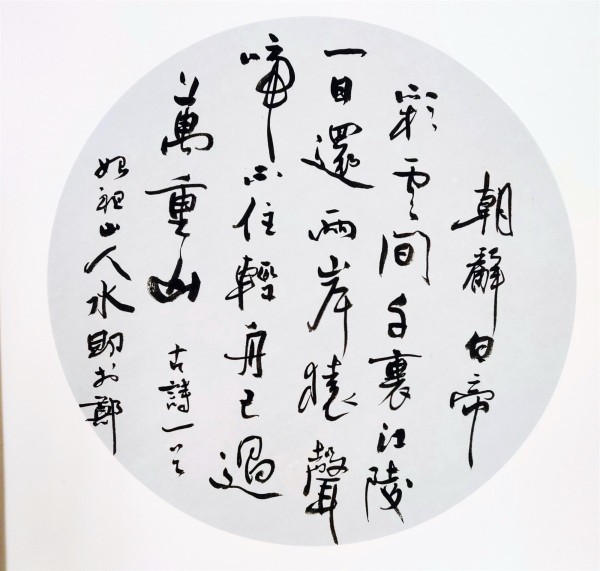 朝辭白帝
彩雲間千裏江陵
一日還兩岸猿聲
啼不住輕舟已過
萬重山 古詩一首
始祖山人水於鄭